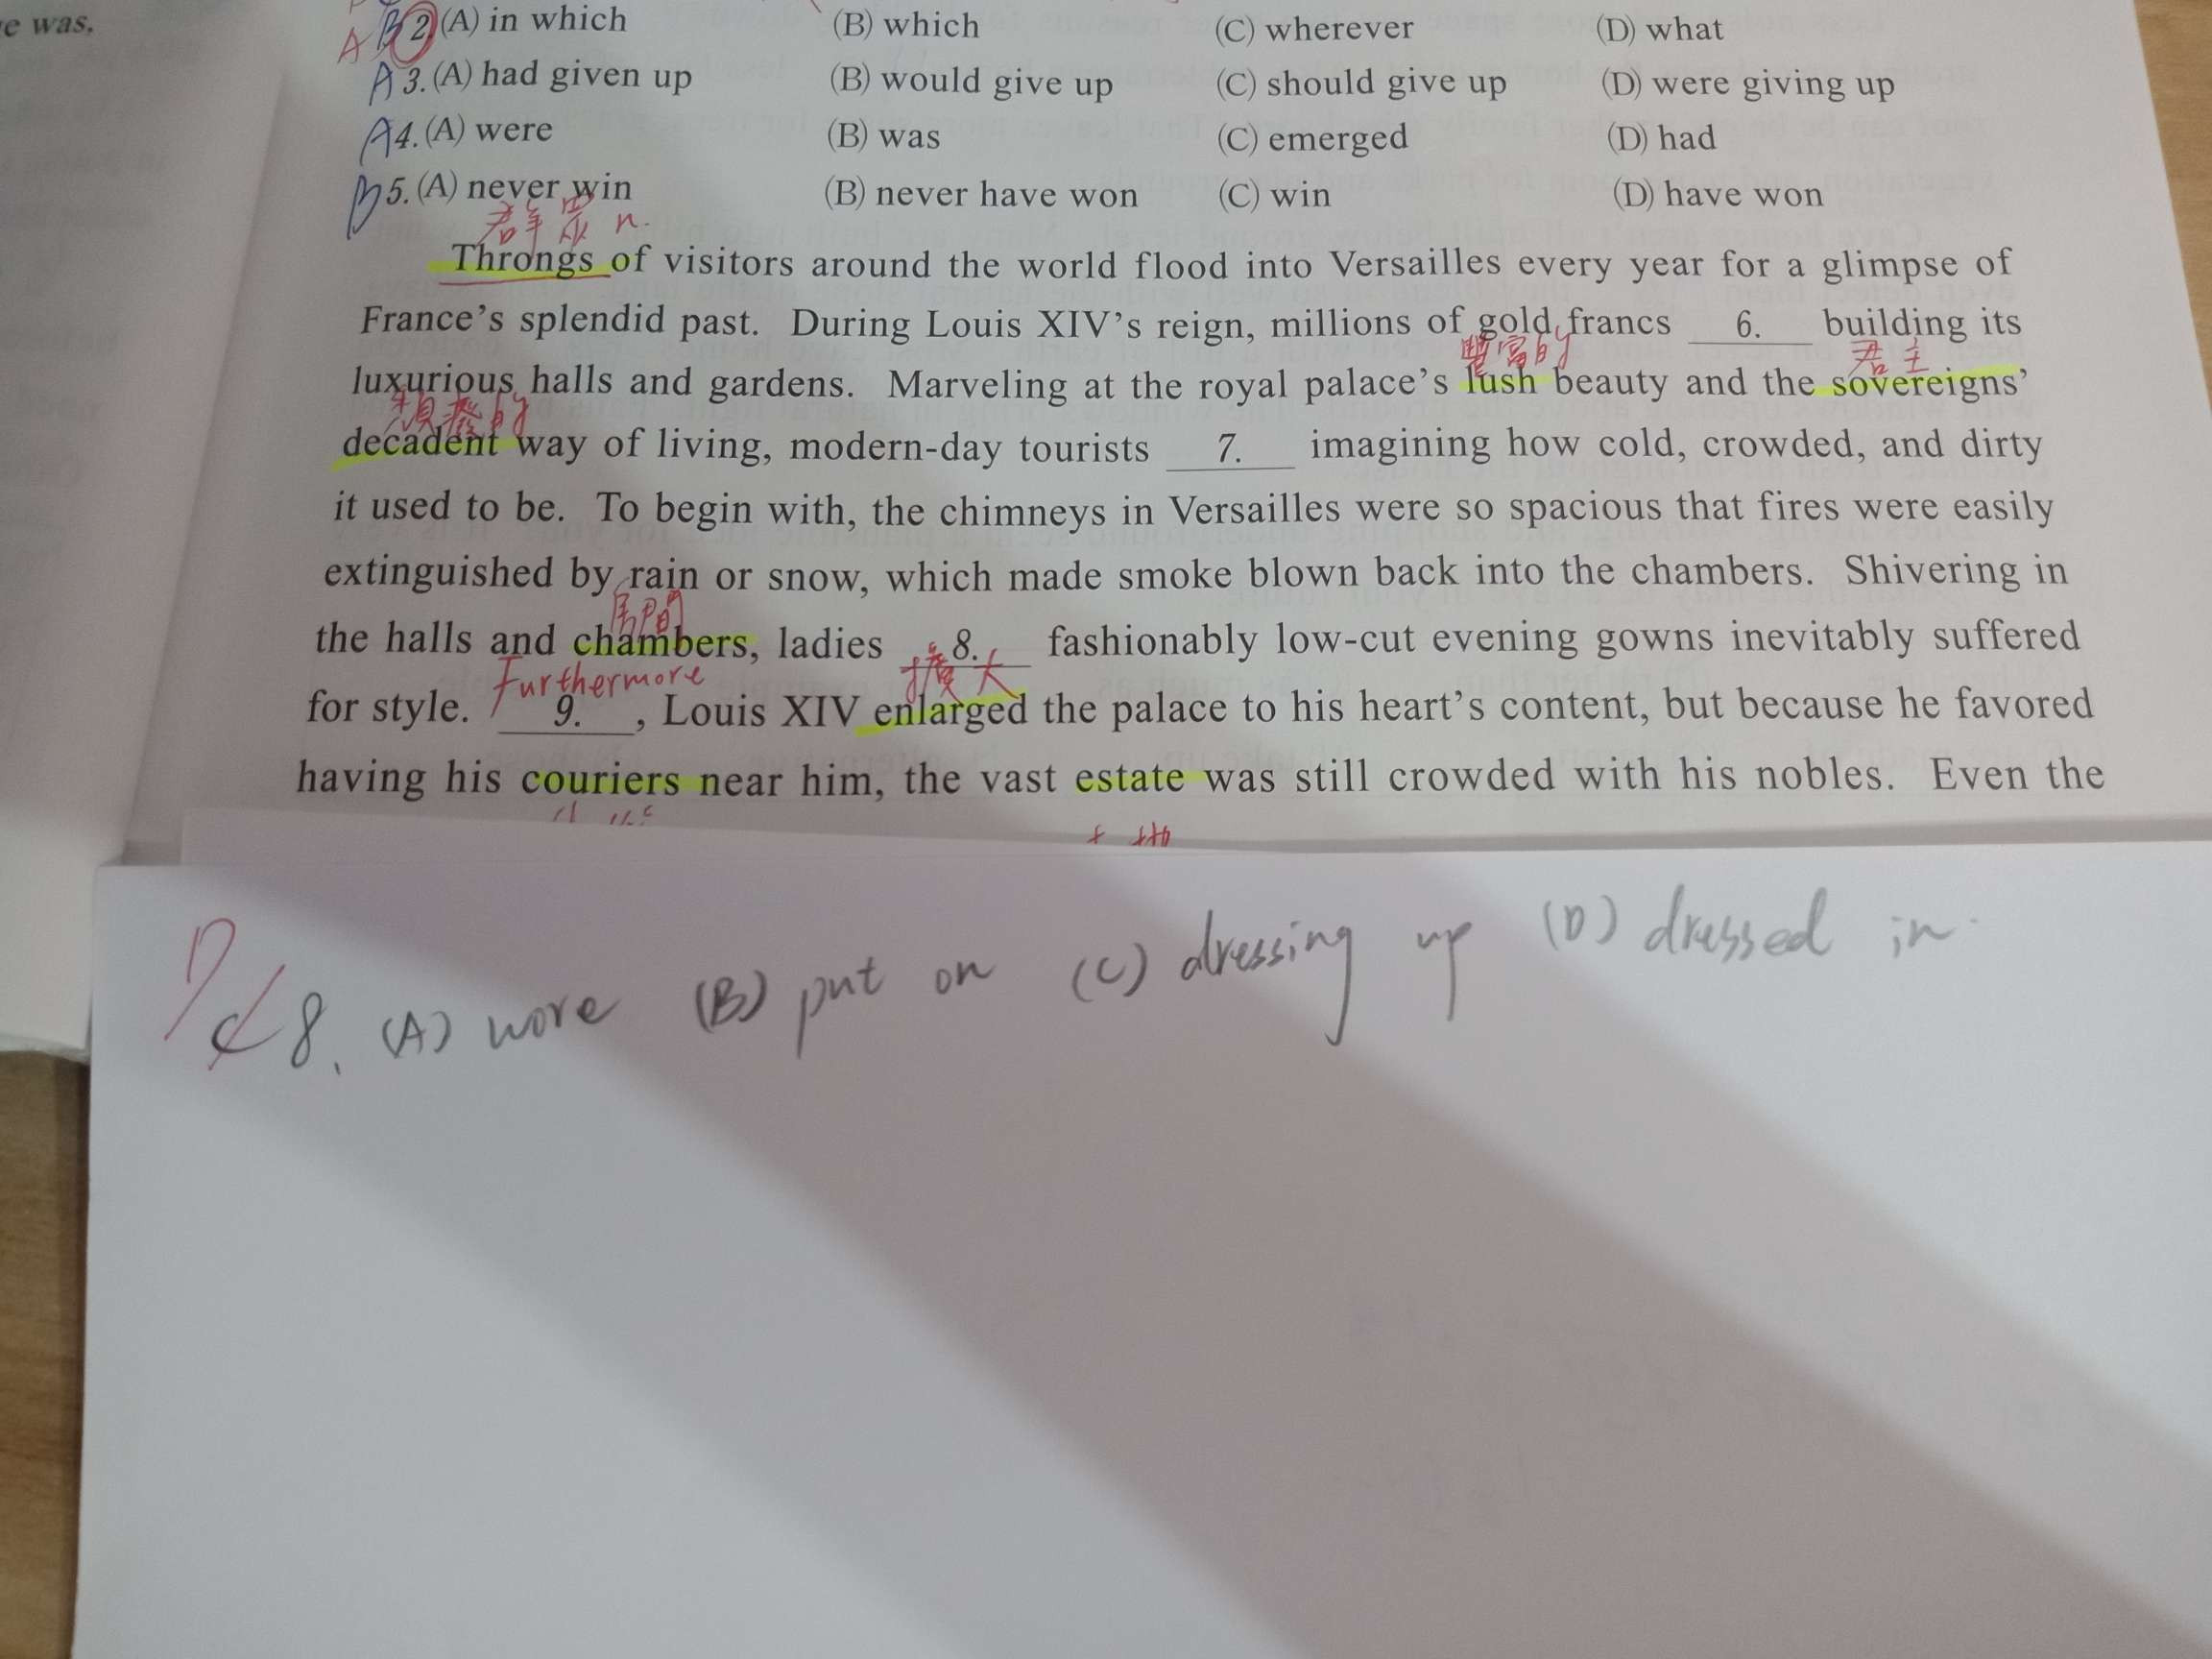 e was,
A B 2. (A) in which (B) which (C) wherever (D) what
A 3. (A) had given up (B) would give up (C) should give up (D) were giving up
A 4. (A) were (B) was (C) emerged (D) had
B 5. (A) never win (B) never have won (C) win (D) have won
n.
Throngs of visitors around the world flood into Versailles every year for a glimpse of
France's splendid past. During Louis XIV's reign, millions of gold francs 6. building its
豐富的 君主
luxurious halls and gardens. Marveling at the royal palace's lush beauty and the sovereigns'
頹廢的
decadent way of living, modern-day tourists 7. imagining how cold, crowded, and dirty
it used to be. To begin with, the chimneys in Versailles were so spacious that fires were easily
extinguished by rain or snow, which made smoke blown back into the chambers. Shivering in
房間
the halls and chambers, ladies 8. fashionably low-cut evening gowns inevitably suffered
Furthermore 擴大
for style. 9. , Louis XIV enlarged the palace to his heart's content, but because he favored
having his couriers near him, the vast estate was still crowded with his nobles. Even the
D C 8. (A) wore (B) put on (C) dressing up (D) dressed in.